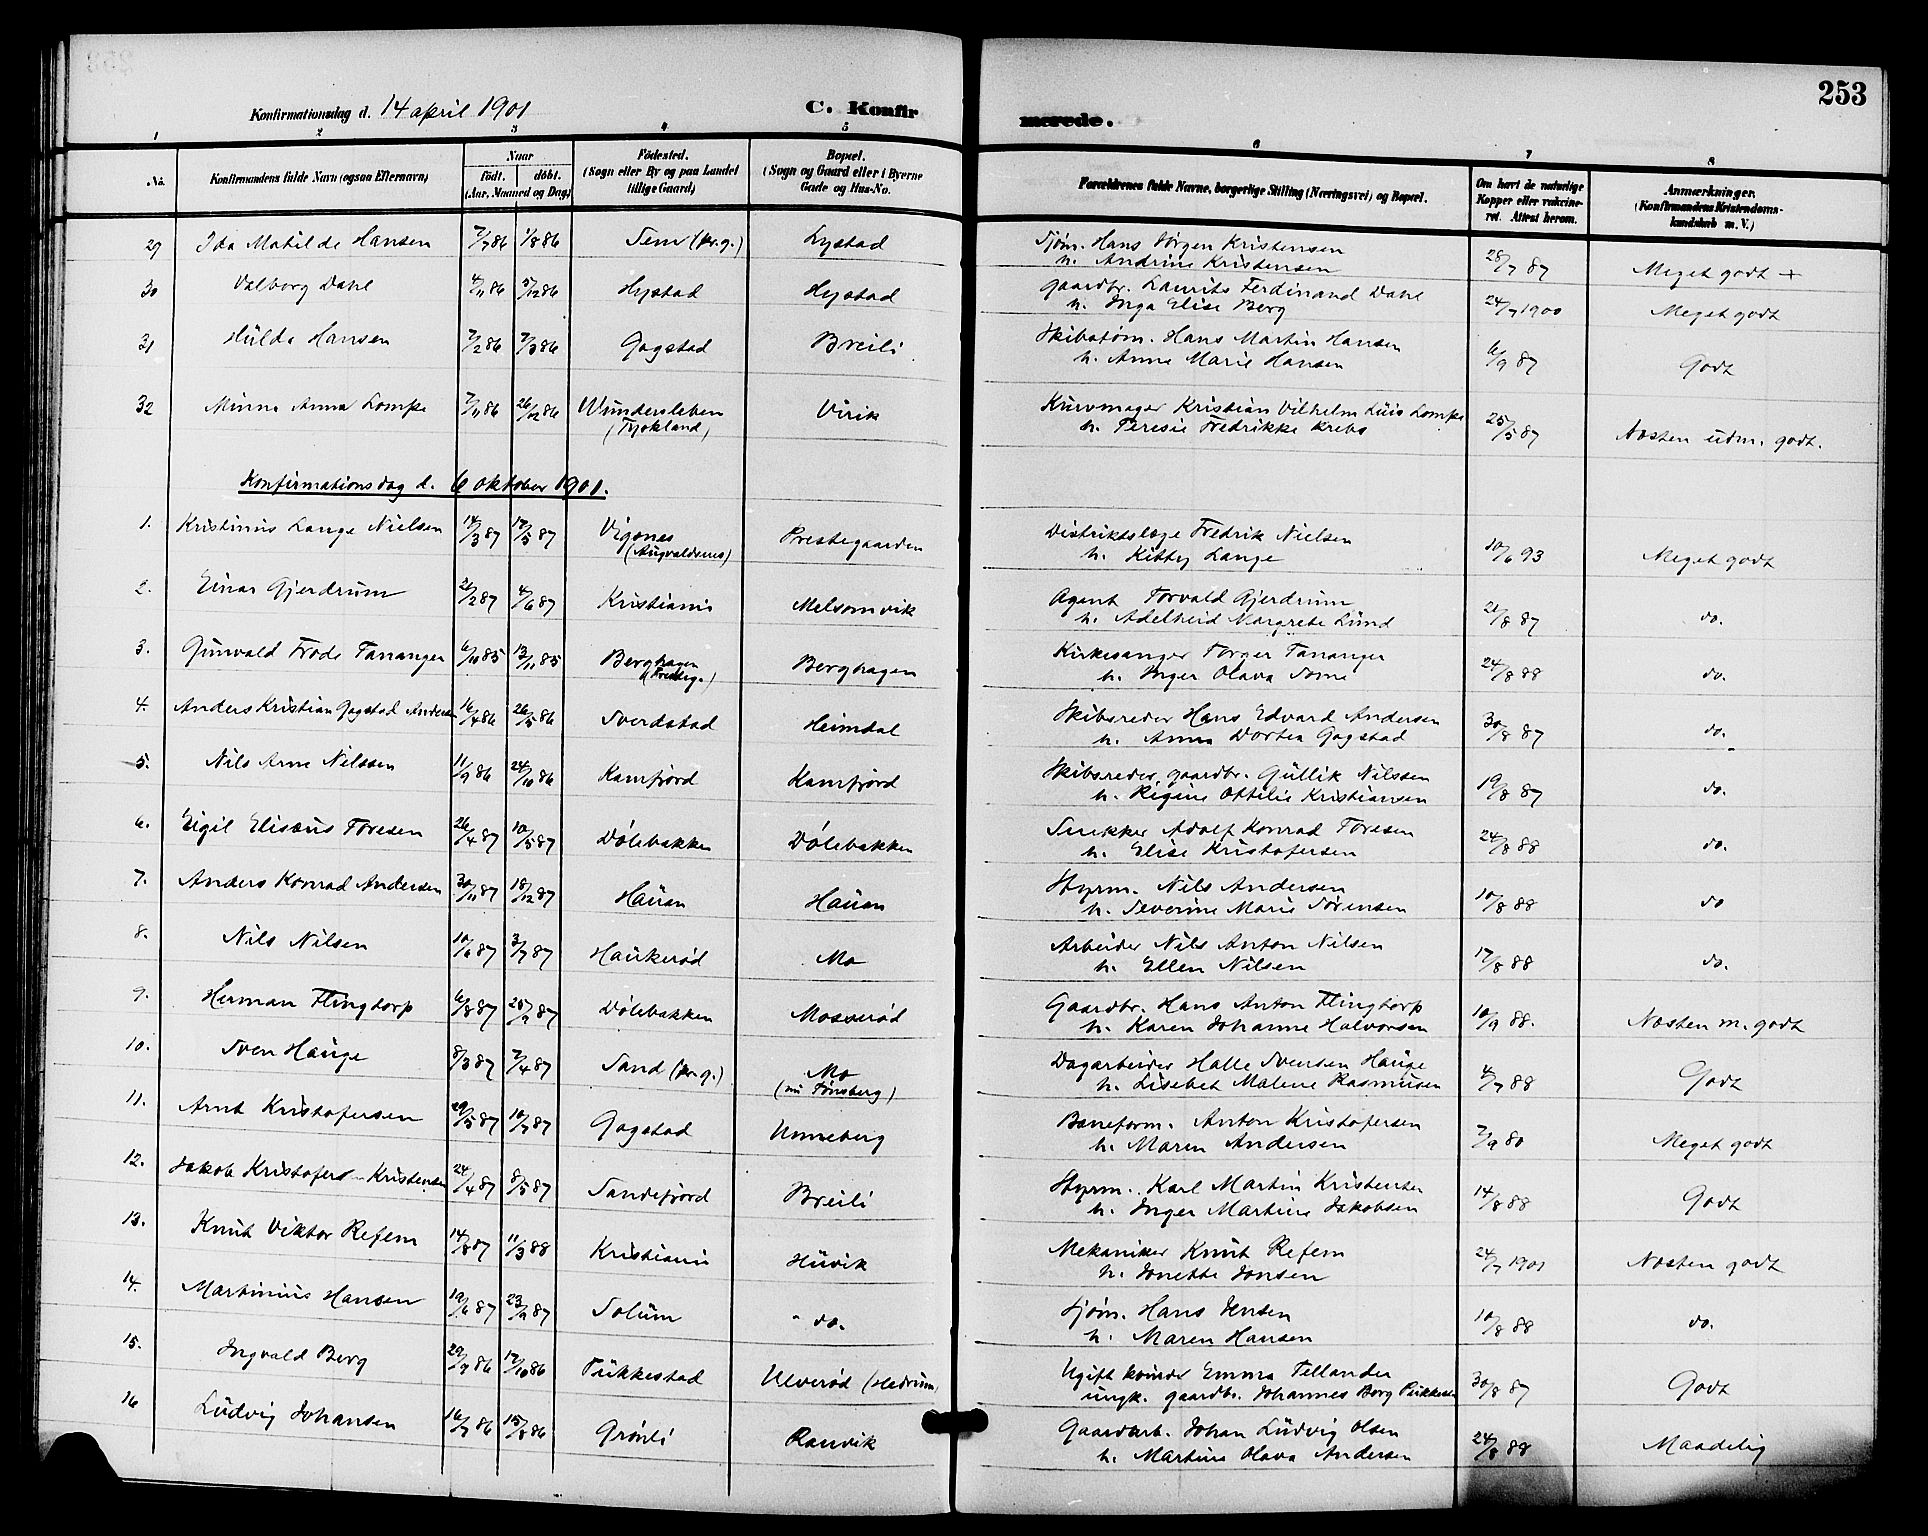 253
Konfirmationsdag d. 14 april 1901
C. Konfirmerede.
1 2 3 4 5 6 7 8
No.
Konfirmandens fulde Navn (ogsaa Efternavn)
Naar
født. døbt.
(Aar, Maaned og Dag)
Fødested.
(Sogn eller By og paa Landet
tillige Gaard)
Bopæl.
(Sogn og Gaard eller i Byerne
Gade og Hus-No.
Forældrenes fulde Navne, borgerlige Stilling (Næringsvei) og Bopæl.
Om havt de naturlige
Kopper eller vakcine-
ret. Attest herom.
Anmærkninger.
(Konfirmandens Kristendoms-
kundskab m. V.)
29 Ida Matilde Hansen 7/7 86 1/8 86 Sem (pr.g.) Lystad Sjøm. Hans Jørgen Kristensen 28/7 87 Meget godt +
h. Andrine Kristensen
30 Valborg Dahl 4/11 86 5/12 86 Hystad Hystad Gaardbr. Laurits Ferdinand Dahl 24/7 1900 Meget godt
h. Inga Elise Berg
31 Hulda Hansen 7/2 86 7/3 86 Gogstad Breili Skibstøm. Hans Martin Hansen 6/9 87 Godt
h. Anne Marie Hansen
32 Minna Anna Lompe 7/11 86 26/12 86 Wundersleben Virik Kurvmager Kristian Vilhelm Luis Lompe 25/5 87 Næsten udm. godt.
(Tyskland) h. Teresie Fredrikke Krebs
Konfirmationsdag d. 6 oktober 1901.
1. Kristinius Lange Nielsen 14/3 87 17/5 87 Vignes Prestegaarden Distriktslæge Fredrik Nielsen 10/6 93 Meget godt
(Augvaldsnes) h. Kitty Lange
2. Einar Gjerdrum 26/2 87 4/6 87 Kristiania Melsomvik Agent Torvald Gjerdrum 21/8 87 do.
h. Adelheid Margrete Lund
3. Gunvald Frode Tananger 6/10 85 13/11 85 Berghagen Berghagen Kirkesanger Torger Tananger 24/8 88 do.
h. Inger Olava Tome
4. Anders Kristian Gogstad Andersen 16/4 86 26/5 86 Sverdstad Heimdal Skibsreder Hans Edvard Andersen 30/8 87 do.
h. Anna Dortea Gogstad
5. Nils Arne Nilssen 11/9 86 24/10 86 Kamfjord Kamfjord Skibsreder, gaardbr. Gullik Nilssen 19/8 87 do.
h. Regine Ottilie Kristiansen
6. Eigil Elisæus Toresen 26/4 87 10/5 87 Dølebakken Dølebakken Snekker Adolf Konrad Toresen 24/8 88 do.
h. Elise Kristofersen
7. Anders Konrad Andersen 30/11 87 18/12 87 Hauan Hauan Styrm. Nils Andersen 10/8 88 do
h. Severine Marie Sørensen
8. Nils Nilsen 10/6 87 3/7 87 Haukerød Mo Arbeider Nils Anton Nilsen 17/8 88 do.
h. Ellen Nilsen
9. Herman Flingtorp 6/8 87 25/9 87 Dølebakken Mosserød Gaardbr. Hans Anton Flingtorp 10/9 88. Næsten m. godt
h. Karen Johanne Halvorsen
10. Sven Hauge 8/3 87 7/4 87 Sand (pr.g.) Mo Dagarbeider Halle Svensen Hauge 4/7 88 Godt
(nu Tønsberg) h. Lisebet Malene Rasmusen
11. Arnt Kristofersen 29/5 87 10/7 87 Gogstad Unneberg Baneform. Anton Kristofersen 7/9 80 Meget godt
h. Maren Andersen
12. Jakob Kristofers Kristensen 24/4 87 8/5 87 Sandefjord Breili Styrm. Karl Martin Kristensen 14/8 88 Godt
h. Inger Martine Jakobsen
13. Knut Viktor Refem 14/8 87 11/3 88 Kristiania Huvik Mekaniker Knut Refem 24/7 1901 Næsten godt
h. Jonette Jonsen
14. Martinius Hansen 19/6 87 23/9 87 Solum do. Sjøm. Hans Jensen 10/8 88 do.
h. Maren Hansen
15. Ingvald Berg 29/9 86 17/10 86 Pukkestad Ulverød (Hedrum) Ugift kvinde Emma Tellander 30/8 87 Godt
ungk. gaardbr. Johannes Berg Pukkestad
16 Ludvig Johansen 16/7 86 15/8 86 Grønli Ranvik Gaardarb. Johan Ludvig Olsen 24/8 88 Maadelig
h. Martine Olava Andersen